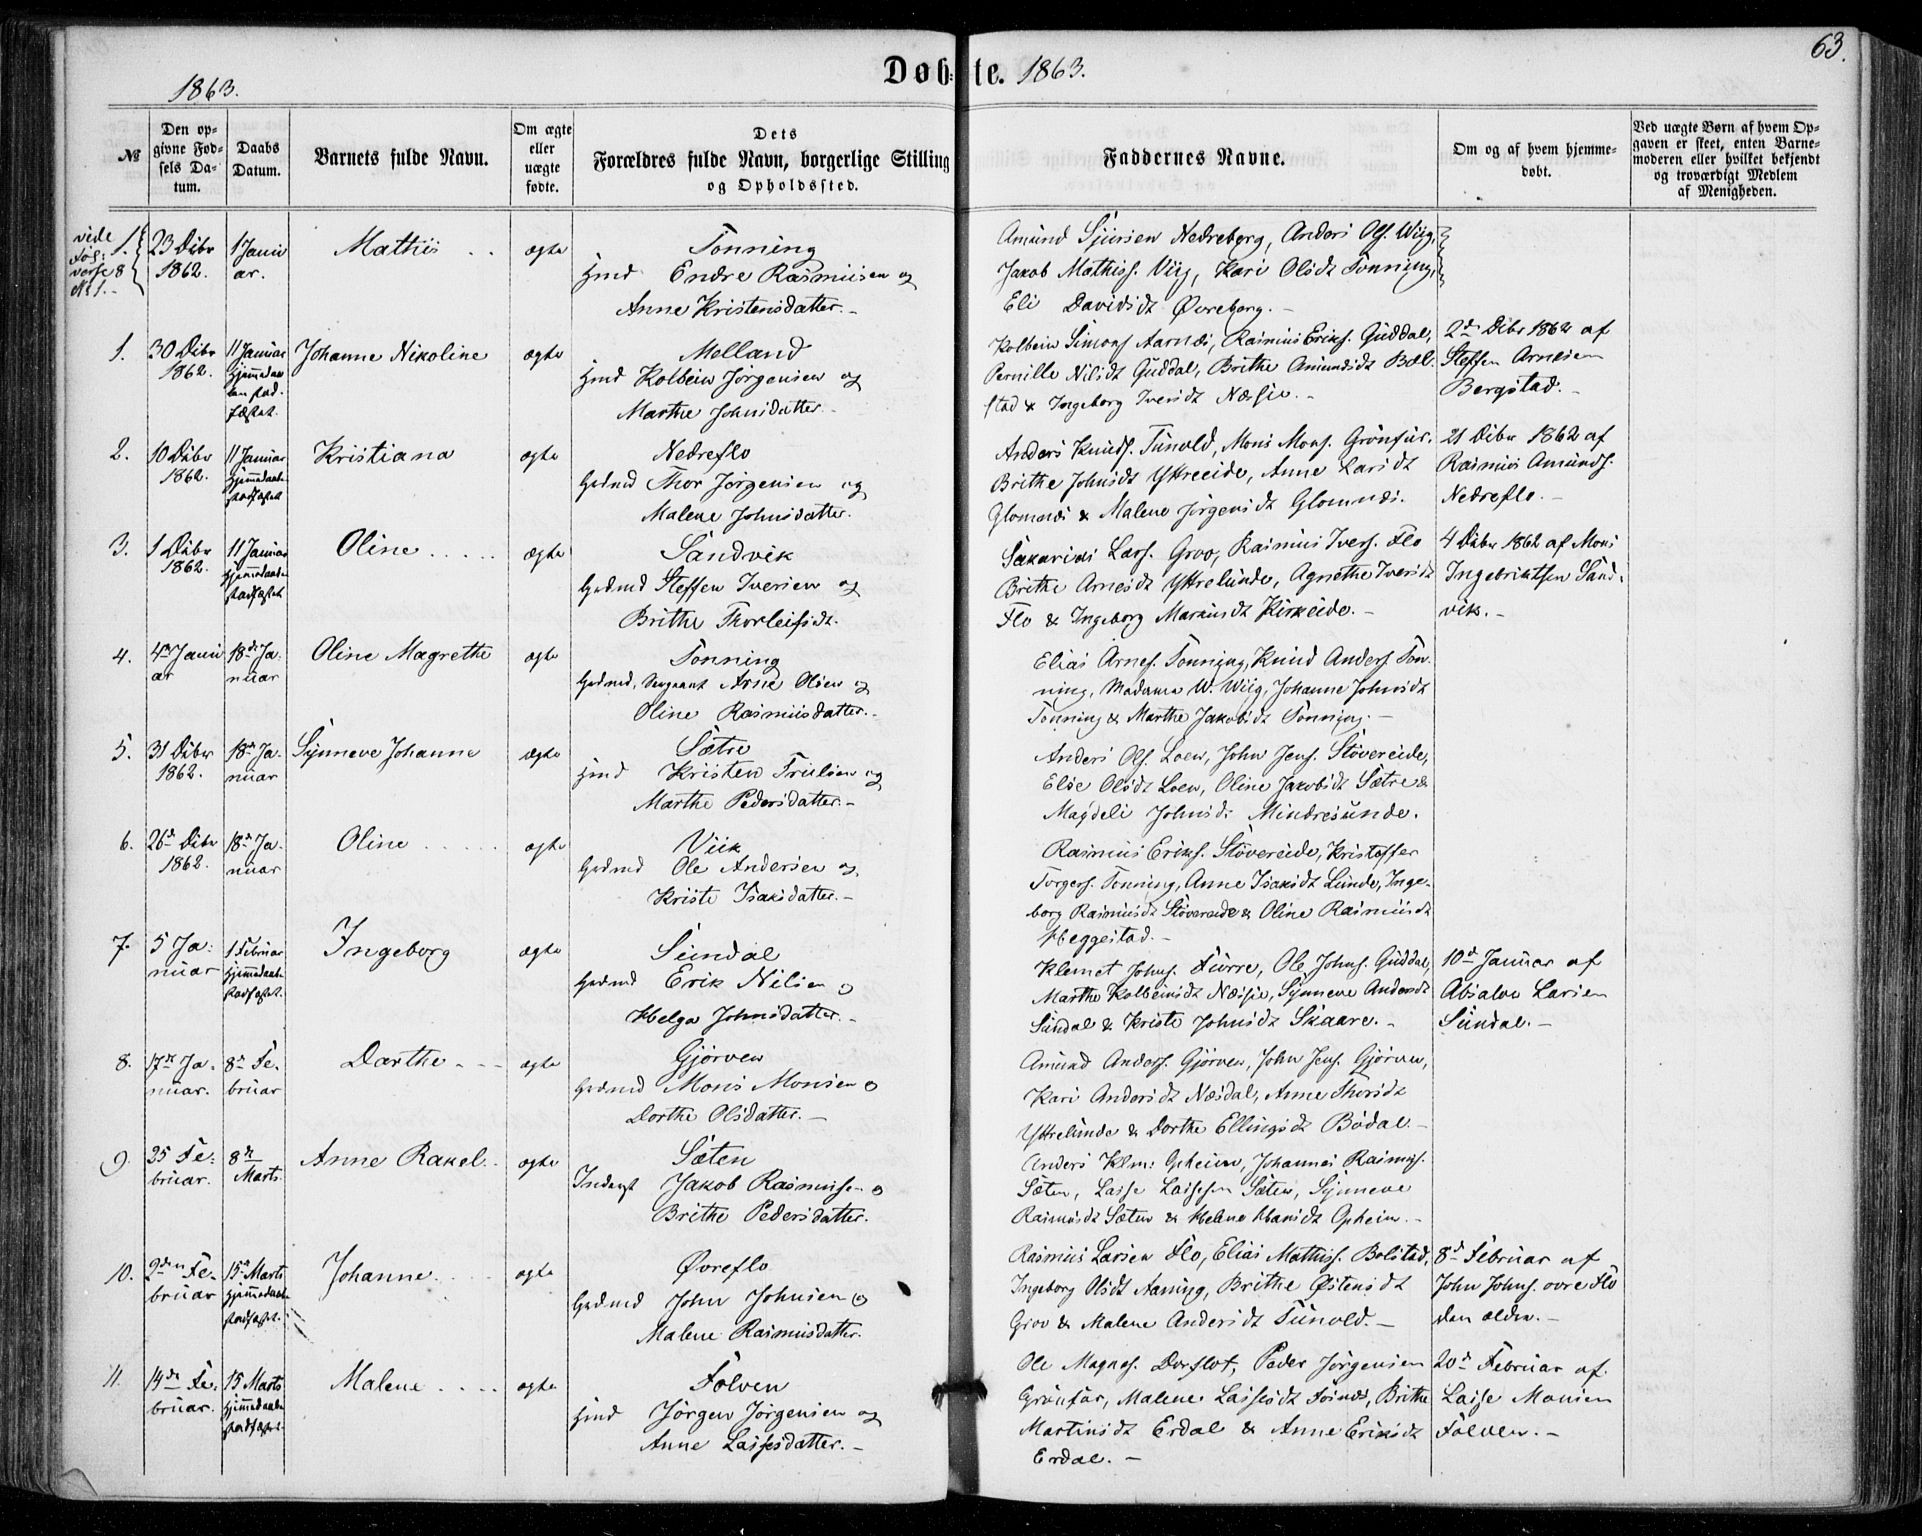 63.
1863.
Døb- te. 1863.
№
Den opgivne Fødsels Datum.
Daabs Datum.
Barnets fulde Navn.
Om ægte eller uægte fødte.
Dets Forældres fulde Navn, borgerlige Stilling og Opholdssted.
Faddernes Navne.
Om og af hvem hjemmedøbt.
Ved uægte Børn af hvem Opgaven er skeet, enten Barnemoderen eller hvilket bekjendt og troværdigt Medlem af Menigheden.
vide
Fol:
verso 8
№ 1.-
1. 23 Dcbr 1862. 1 Januar. Mathis ægte
Tonning
Hmd Endre Rasmusen og
Anne Kristensdatter.-
Amund Sjursen Nedreberg, Anders Ols. Wiig,
Jakob Mathiss. Viig, Kari Olsdt Tonning,
Eli Davidsdt Øvreberg.-
1. 30 Dcbr 1862. 11 Januar Hjemmedaaben stadfæstet. Johanne Nikoline ægte
Melland
Hmd Kolbein Jørgensen og
Marthe Johnsdatter.
Kolbein Simons Aarnæs, Rasmus Eriks. Guddal,
Pernille Nilsdt Guddal, Brithe Amundsdt Bol-
stad & Ingeborg Iversdt Næsje.-
2den Dcbr 1862 af
Steffen Arnesen
Bergstad.-
2. 10 Dcbr 1862. 11 Januar Hjemmedaab stadfæstet Kristiana ægte
Nedreflo
Gbrmd Thor Jørgensen og
Malene Johnsdatter.
Anders Knuds. Tunold, Mons Mons. Grønfur.
Brithe Johnsdt Yttreeide, Anne Larsdt
Glomnæs & Malene Jørgensdt Glomnæs.
21 Dcbr 1862 af
Rasmus Amunds.
Nedreflo.-
3. 1 Dcbr 1862. 11 Januar Hjemmedaab stadfæstet Oline ægte
Sandvik
Gbrmd Steffen Iversen og
Brithe Thorleifsdt.
Sakarias Lars. Grov, Rasmus Ivers. Flo
Brithe Arnesdt Yttrelunde, Agnethe Iversdt
Flo & Ingeborg Markusdt Kirkeide.-
4 Dcbr 1862 af Mons
Ingebriktsen Sand-
vik.-
4. 4de Januar 18de Januar Oline Magrethe ægte
Tonning
Gbrmd, Sergeant Arne Olsen og
Oline Rasmusdatter.
Elias Arnes. Tonning, Knud Anders. Ton-
ning, Madame W. Wiig, Johanne Johnsdt
Tonning & Marthe Jakobsdt Tonning.-
5. 31 Dcbr 1862. 18de Januar Synneve Johanne ægte
Sætre
Hmd Kristen Trulsen og
Marthe Pedersdatter.-
Anders Ols. Loen, John Jens. Støvereide,
Else Olsdt Loen, Oline Jakobsdt Sætre &
Magdeli Johnsd. Mindresunde.
6. 26de Dcbr 1862. 18de Januar Oline ægte
Viik
Gbrmd Ole Andersen og
Kriste Isaksdatter.-
Rasmus Eriks. Støvereide, Kristoffer
Torgers. Tonning, Anne Isaksdt Lunde, Inge-
borg Rasmusdt Støvereide & Oline Rasmusdt
Heggestad.-
7. 5 Januar 1 Februar Hjemmedaab stadfæstet. Ingeborg ægte
Sundal
Gbrmd Erik Nilsen og
Helga Johnsdatter.-
Klemet Johns. Furre, Ole Johns. Guddal,
Marthe Kolbeinsdt Næsje, Synneve Andersdt
Sundal & Kriste Johnsdt Skaare.-
10de Januar af
Absalon Larsen
Sundal.-
8. 17de Januar. 8de Februar Dorthe ægte
Gjørven
Gbrmd Mons Monsen og
Dorthe Olsdatter.-
Amund Anders. Gjørven, John Jens. Gjørven,
Kari Andersdt Næsdal, Anne Thorsdt
Yttrelunde & Dorthe Ellingsdt Bødal.-
9. 25 Februar. 8de Marts. Anne Rakel ægte
Sæten
Inderst Jakob Rasmusen og
Brithe Pedersdatter.
Anders Klm: Opheim, Johannes Rasmus.
Sæten, Lasse Lassesen Sæten, Synneve
Rasmusdt Sæten & Helene Hansdt Opheim.-
10. 2den Februar 15de Marts Hjemmedaab stadfæstet. Johanne ægte
Øvreflo
Gbrmd John Johnsen og
Malene Rasmusdatter.
Rasmus Larsen Flo, Elias Mathiss. Bolstad,
Ingeborg Olsdt Aaning, Brithe Østensdt
Grov & Malene Andersdt Tunold.-
8de Februar af
John Johns. øvre Flo
den ældre.-
11. 14de Februar. 15 Marts Hjemmedaab stadfæstet. Malene ægte
Folven
Hmd Jørgen Jørgensen og
Anne Lassesdatter.-
Ole Magnes. Dorflot, Peder Jørgensen
Grønfur, Malene Lassesdt Fosnæs, Brithe
Martinsdt Erdal & Anne Eriksdt
Erdal.-
20de Februar af
Lasse Monsen
Folven.-